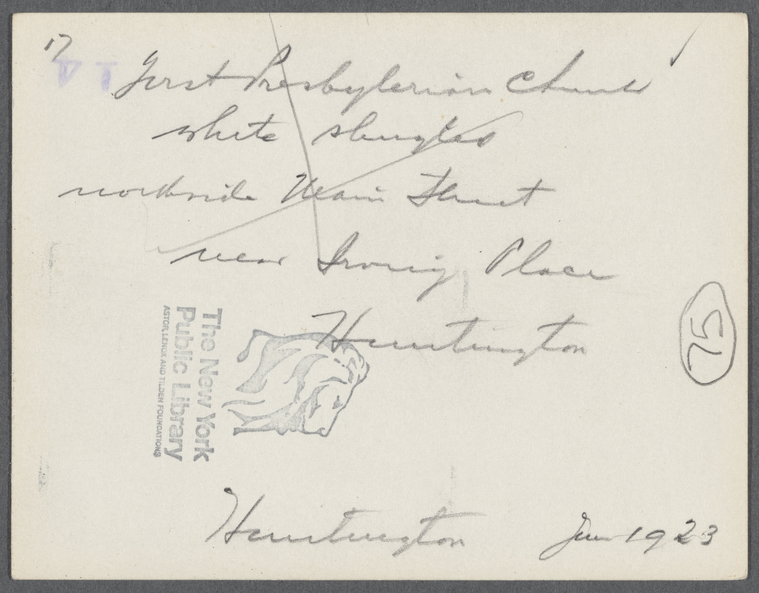 17
14
First Presbyterian Church
white shingles
northside Main Street
near Irving Place
Huntington
75
The New York
Public Library
ASTOR, LENOX AND TILDEN FOUNDATIONS
Huntington June 1923